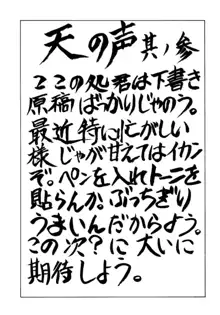 天の声 其ノ参
ここの処君は下書き
原稿ばかりじゃのう。
最近特に忙がしい
様じゃが甘えてはイカン
ぞ。ペンを入れトーンを
貼らんか、ぶっちぎり
うまいんだからよう。
この次?に大いに
期待しよう。